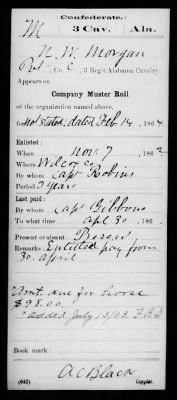 Confederate.
M 3 Cav. Ala.
N. W. Morgan
Pvt., Co. E, 3 Reg't Alabama Cavalry.
Appears on
Company Muster Roll
of the organization named above,
for Not stated; dated Feb. 14, 1864
Enlisted:
When Nov. 7, 1862
Where Wilcox Co.
By whom Capt Robins
Period 3 years
Last paid:
By whom Capt Gibbons
To what time Apl 30, 186
Present or absent Present
Remarks: Entitled pay from
30. April
Amt due for horse
$98.00.
added July 13/08
Book mark:
A C Black
(642) Copyist.